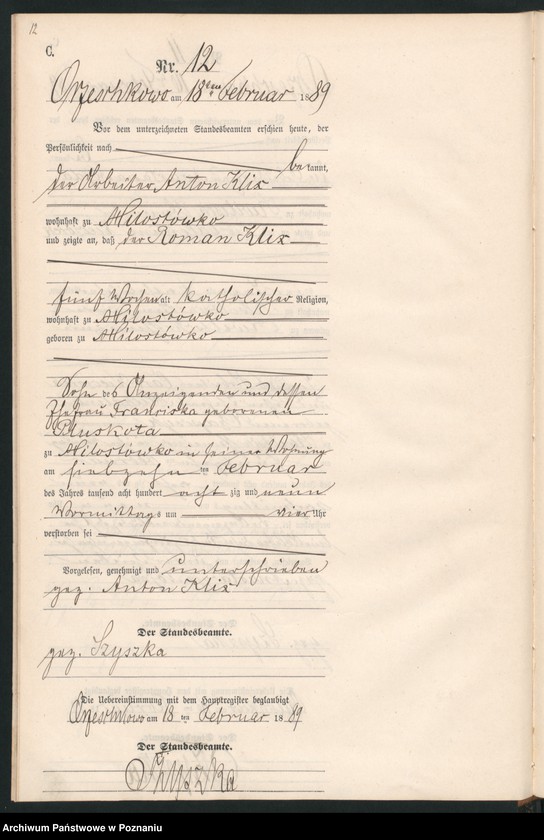 12
C.
Nr. 12
Orzeschkowo am 18ten Februar 1889
Vor dem unterzeichneten Standesbeamten erschien heute, der
Persönlichkeit nach
bekannt,
der Arbeiter Anton Klix
wohnhaft zu Milostówko
und zeigte an, daß der Roman Klix
fünf Wochen alt katholischer Religion,
wohnhaft zu Milostówko
geboren zu Milostówko
Sohn des Anzeigenden und dessen
Ehefrau Franciska geborenen
Pluskota
zu Milostówko in seiner Wohnung
am siebzehn ten Februar
des Jahres tausend acht hundert acht zig und neun
Vormittags um vier Uhr
verstorben sei
Vorgelesen, genehmigt und unterschrieben
gez. Anton Klix
Der Standesbeamte.
gez. Szyszka
Die Uebereinstimmung mit dem Hauptregister beglaubigt
Orzeschkowo am 18 ten Februar 1889
Der Standesbeamte.
Szyszka
Archiwum Państwowe w Poznaniu